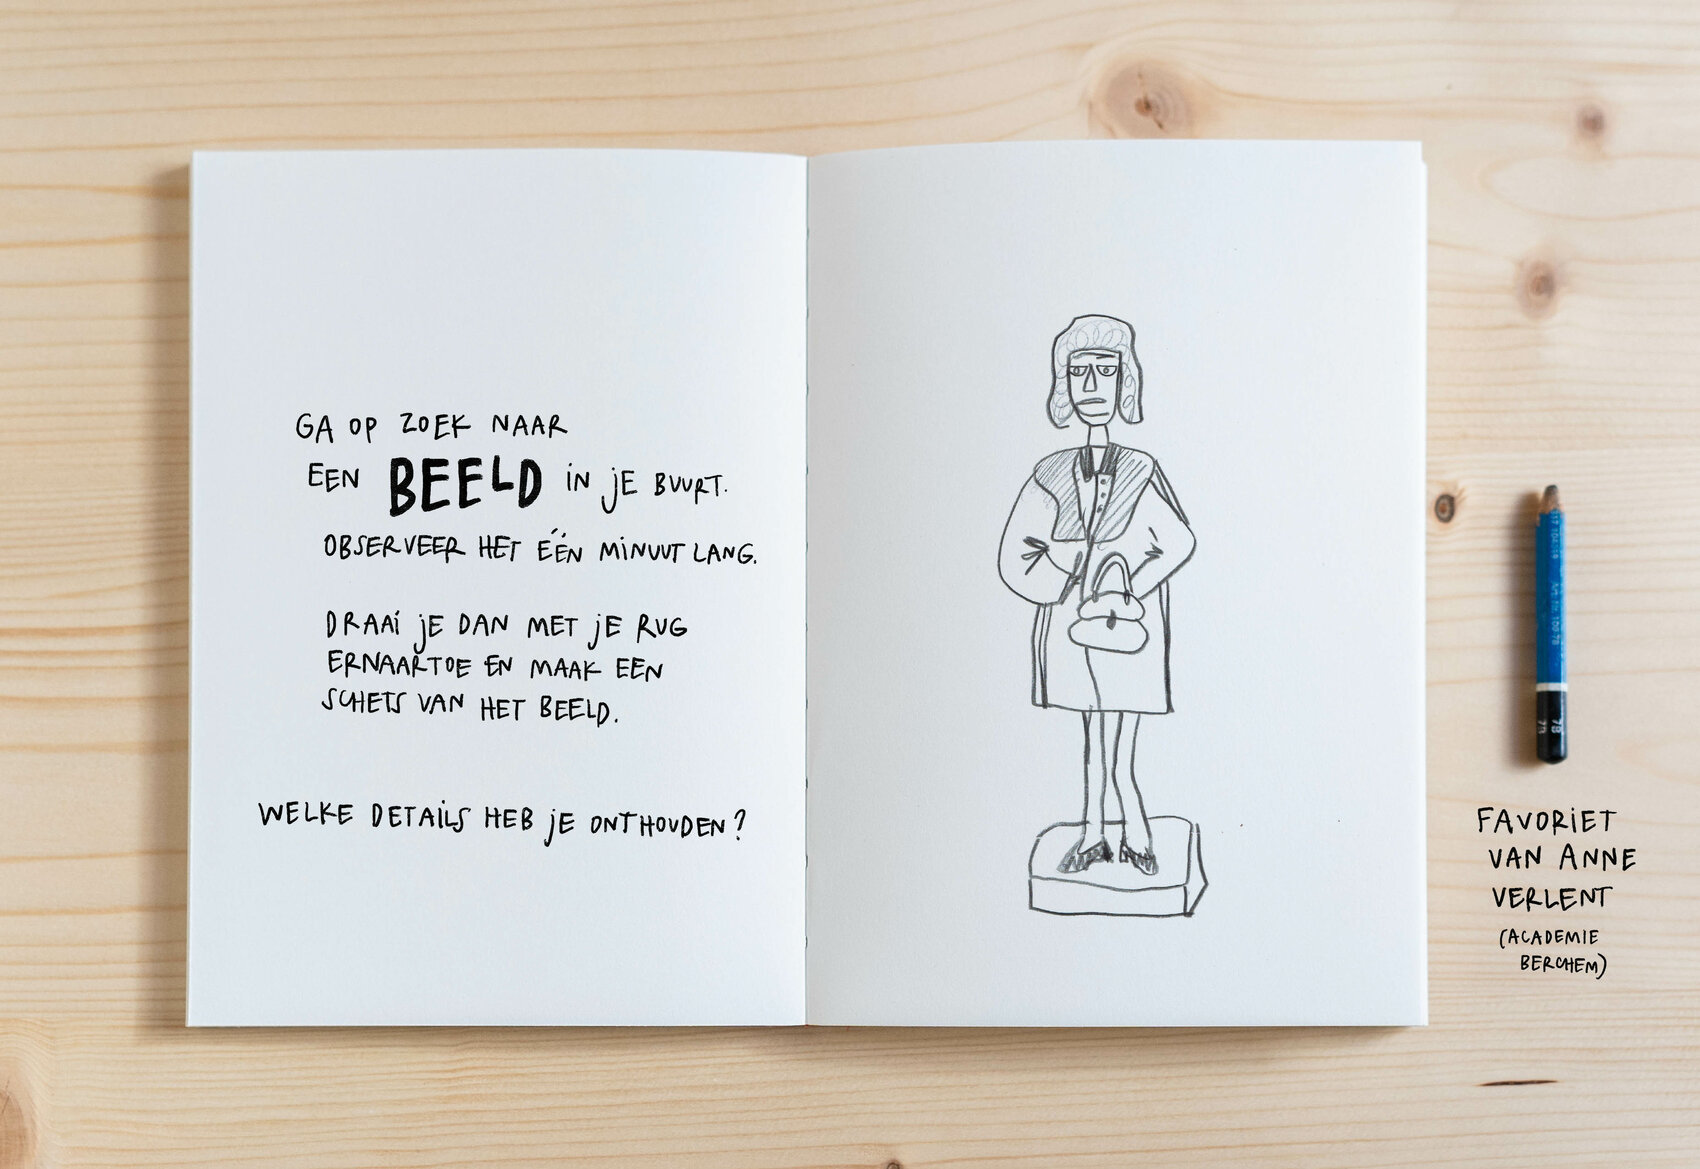 GA OP ZOEK NAAR
EEN BEELD IN JE BUURT.
OBSERVEER HET ÉÉN MINUUT LANG.
DRAAI JE DAN MET JE RUG
ERNAARTOE EN MAAK EEN
SCHETS VAN HET BEELD.
WELKE DETAILS HEB JE ONTHOUDEN?
FAVORIET
VAN ANNE
VERLENT
(ACADEMIE
BERCHEM)